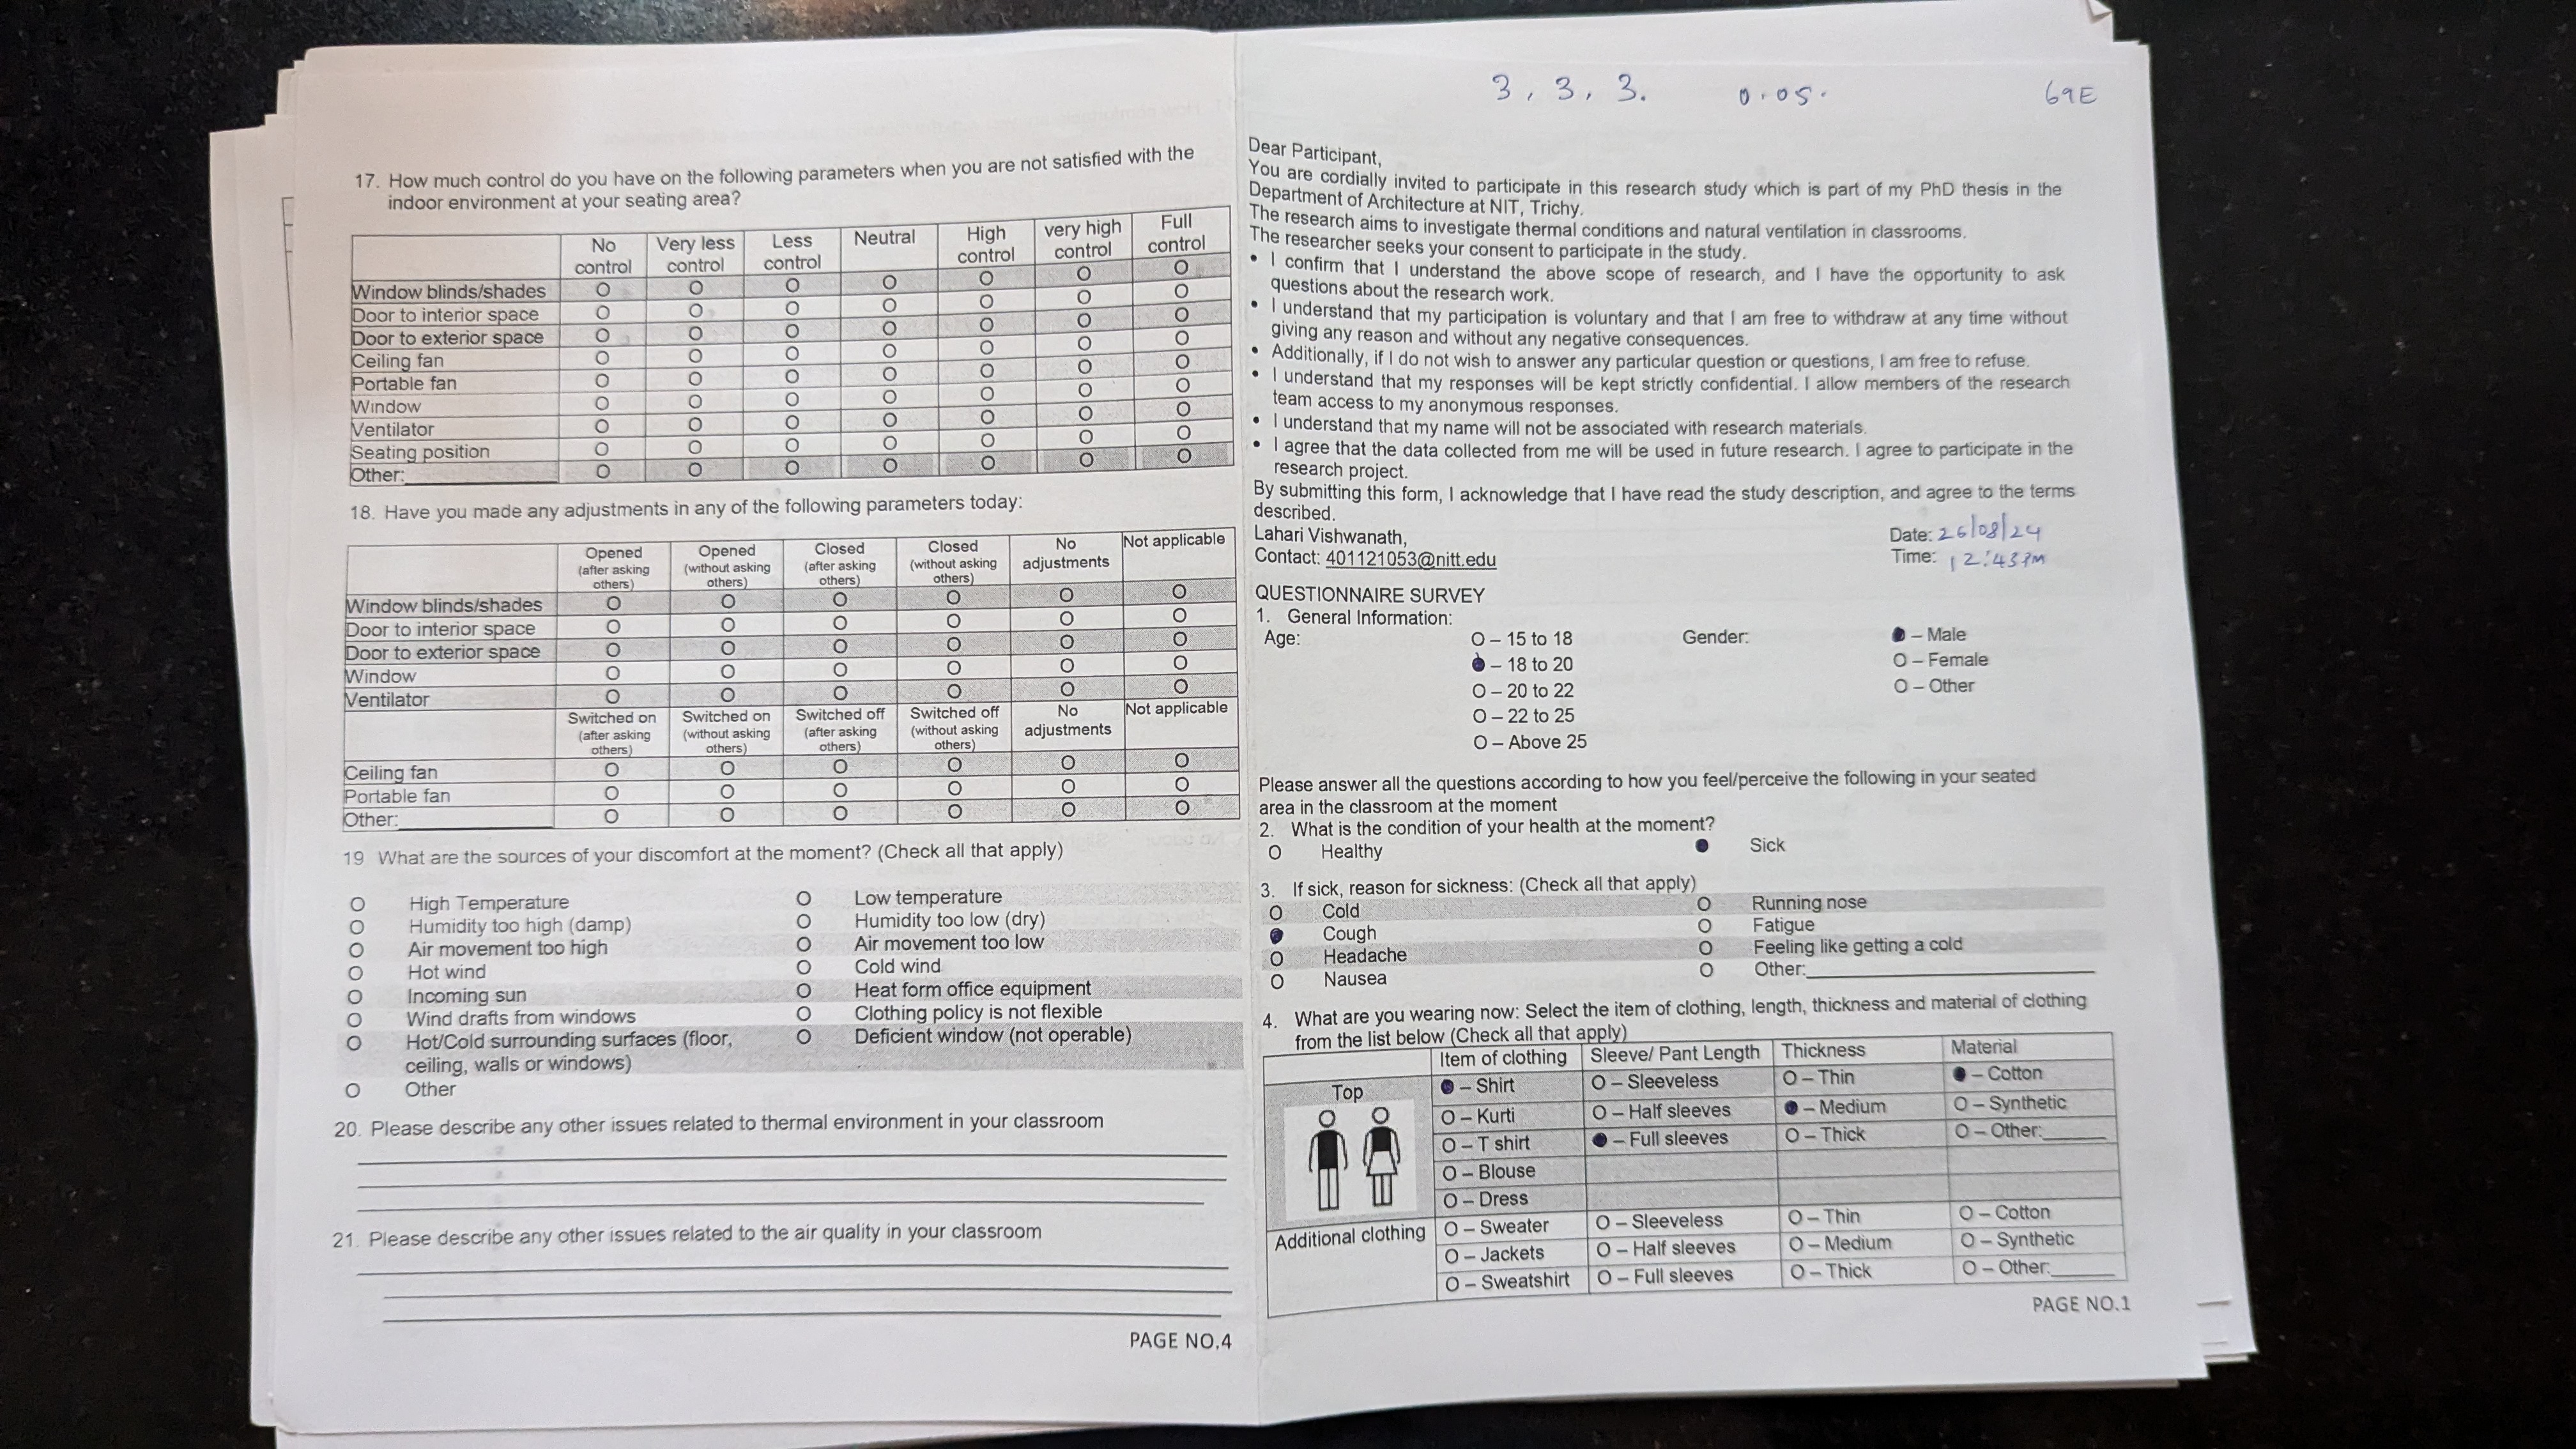 17. How much control do you have on the following parameters when you are not satisfied with the
indoor environment at your seating area?
No control Very less control Less control Neutral High control very high control Full control
Window blinds/shades O O O O O O O
Door to interior space O O O O O O O
Door to exterior space O O O O O O O
Ceiling fan O O O O O O O
Portable fan O O O O O O O
Window O O O O O O O
Ventilator O O O O O O O
Seating position O O O O O O O
Other:__________ O O O O O O O
18. Have you made any adjustments in any of the following parameters today:
Opened (after asking others) Opened (without asking others) Closed (after asking others) Closed (without asking others) No adjustments Not applicable
Window blinds/shades O O O O O O
Door to interior space O O O O O O
Door to exterior space O O O O O O
Window O O O O O O
Ventilator O O O O O O
Switched on (after asking others) Switched on (without asking others) Switched off (after asking others) Switched off (without asking others) No adjustments Not applicable
Ceiling fan O O O O O O
Portable fan O O O O O O
Other:__________ O O O O O O
19 What are the sources of your discomfort at the moment? (Check all that apply)
O High Temperature O Low temperature
O Humidity too high (damp) O Humidity too low (dry)
O Air movement too high O Air movement too low
O Hot wind O Cold wind
O Incoming sun O Heat form office equipment
O Wind drafts from windows O Clothing policy is not flexible
O Hot/Cold surrounding surfaces (floor, O Deficient window (not operable)
ceiling, walls or windows)
O Other
20. Please describe any other issues related to thermal environment in your classroom
21. Please describe any other issues related to the air quality in your classroom
PAGE NO.4
3, 3, 3. 0.05. 69E
Dear Participant,
You are cordially invited to participate in this research study which is part of my PhD thesis in the
Department of Architecture at NIT, Trichy.
The research aims to investigate thermal conditions and natural ventilation in classrooms.
The researcher seeks your consent to participate in the study.
• I confirm that I understand the above scope of research, and I have the opportunity to ask
questions about the research work.
• I understand that my participation is voluntary and that I am free to withdraw at any time without
giving any reason and without any negative consequences.
• Additionally, if I do not wish to answer any particular question or questions, I am free to refuse.
• I understand that my responses will be kept strictly confidential. I allow members of the research
team access to my anonymous responses.
• I understand that my name will not be associated with research materials.
• I agree that the data collected from me will be used in future research. I agree to participate in the
research project.
By submitting this form, I acknowledge that I have read the study description, and agree to the terms
described.
Lahari Vishwanath, Date: 26/08/24
Contact: 401121053@nitt.edu Time: 12:43PM
QUESTIONNAIRE SURVEY
1. General Information:
Age: O – 15 to 18 Gender: ● – Male
● – 18 to 20 O – Female
O – 20 to 22 O – Other
O – 22 to 25
O – Above 25
Please answer all the questions according to how you feel/perceive the following in your seated
area in the classroom at the moment
2. What is the condition of your health at the moment?
O Healthy ● Sick
3. If sick, reason for sickness: (Check all that apply)
O Cold O Running nose
● Cough O Fatigue
O Headache O Feeling like getting a cold
O Nausea O Other:__________
4. What are you wearing now: Select the item of clothing, length, thickness and material of clothing
from the list below (Check all that apply)
Item of clothing Sleeve/ Pant Length Thickness Material
Top ● – Shirt O – Sleeveless O – Thin ● – Cotton
O – Kurti O – Half sleeves ● – Medium O – Synthetic
O – T shirt ● – Full sleeves O – Thick O – Other:______
O – Blouse
O – Dress
Additional clothing O – Sweater O – Sleeveless O – Thin O – Cotton
O – Jackets O – Half sleeves O – Medium O – Synthetic
O – Sweatshirt O – Full sleeves O – Thick O – Other:______
PAGE NO.1